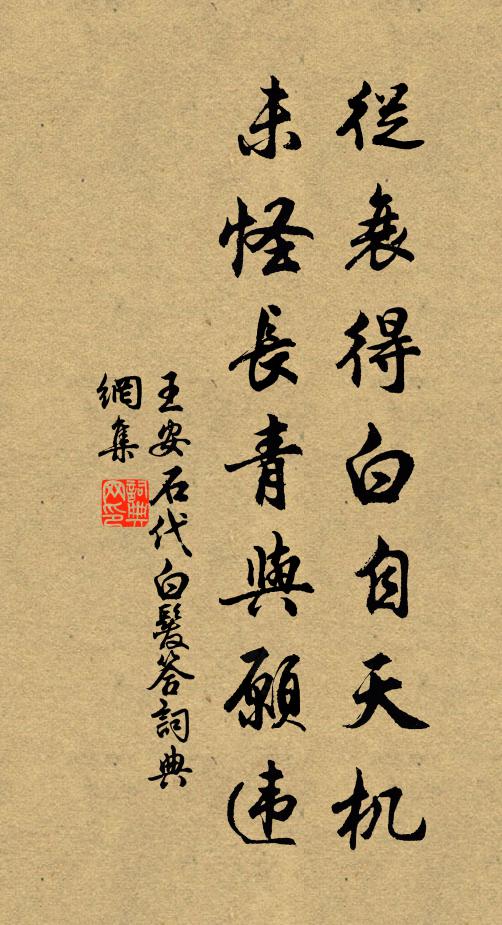 從衰得白自天机
未怪長青與願违
王安石代白髮答詞典
網集
詞典
网印